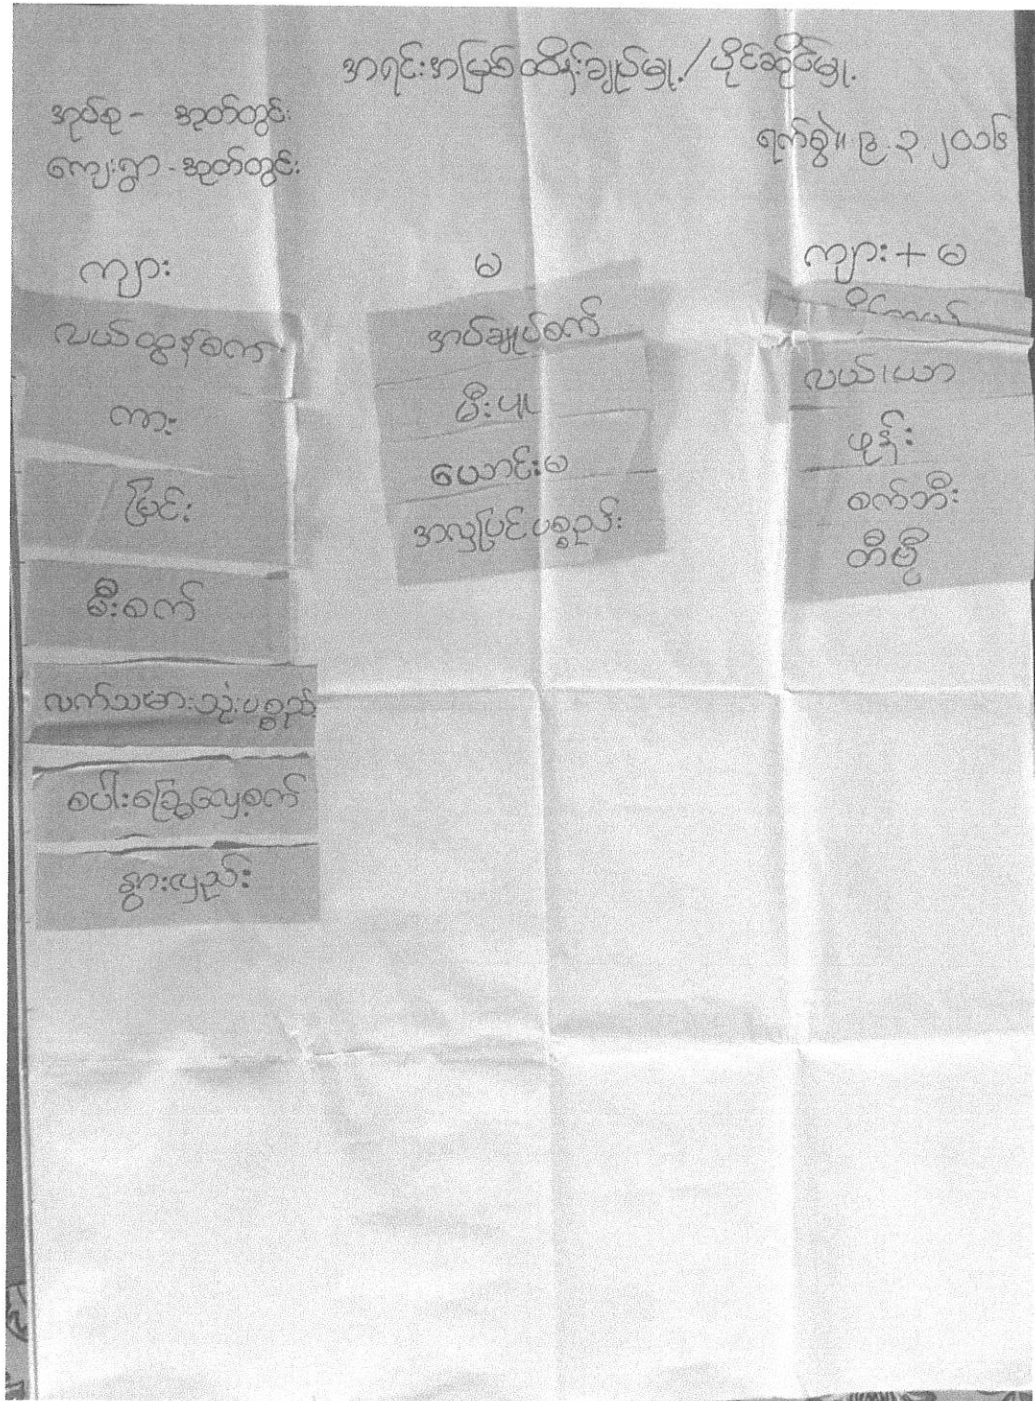 အရင်းအမြစ်ထိန်းချုပ်မှု./ပိုင်ဆိုင်မှု.
အုပ်စု - အုတ်တွင်း
ရက်စွဲ။ ၉.၃.၂၀၁၆
ကျေးရွာ - အုတ်တွင်း
ကျား
မ
ကျား + မ
လယ်ထွန်စက်
ကား
မြင်း
မီးစက်
လက်သမားသုံးပစ္စည်း
စပါးခြွေလှေ့စက်
နွားလှည်း
အပ်ချုပ်စက်
မီးပူ
ယောင်းမ
အလှပြင်ပစ္စည်း
လယ်၊ယာ
ဖုန်း
စက်ဘီး
တီဗွီ